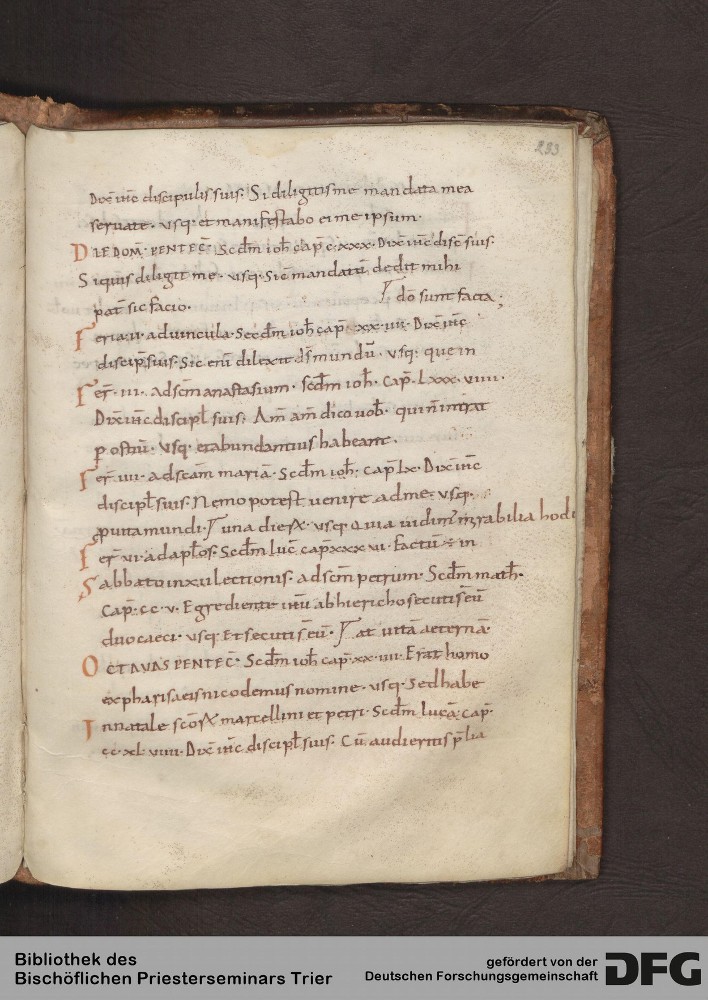 233
Dix̄ ih̄c discipulis suis. Si diligitis me mandata mea
servate. usq. et manifestabo ei me ipsum.
DIE DOM̄. PENTEC̄. Scd̄m ioh̄ cap̄ c.xxx. Dix̄ ih̄c disc̄ suis.
Siquis diligit me. usq. Sic mandatū dedit mihi
pat̄ sic facio. dō sunt facta;
Feria ii. ad vincula. Secd̄m ioh̄ cap̄. xx.iiii. Dix̄ ih̄c
discip̄ suis. Sic enī dilexit d̄s mundū. usq. que in
Fer̄. iii. ad sc̄m anastasium. scd̄m ioh̄. Cap̄. Lxxx.viiii.
Dix̄ ih̄c discipl̄ suis. Am̄ am̄ dico vob̄. qui n̄ intrat
p ostiū. usq. et abundantius habeant.
Fer̄. iiii. ad sc̄am mariā. Scd̄m ioh̄. cap̄ Lx. Dix̄ ih̄c
discipl̄ suis. Nemo potest venire ad me. usq.
una die usq. Quia vidim mirabilia hodi
Fer̄. vi. ad apl̄os. Scd̄m Luc̄ cap̄ xxx.vi. Factū ē in
Sabbato in xii Lectionis. ad sc̄m petrum. Scd̄m math̄.
Cap̄. cc.v. Egrediente ih̄u ab hiericho secuti s̄ eū
duo caeci. usq. Et secuti s̄ eū. at vitā aeternā.
OCTAVAS PENTEC̄. Scd̄m ioh̄ cap̄ xx.iiii. Erat homo
ex pharisaeis nicodemus nomine. usq. Sed habe
In natale sc̄oꝝ marcellini et petri. Scd̄m Lucā. Cap̄.
cc.xL.viiii. Dix̄ ih̄c discipl̄ suis. Cū audieritis p̄lia
Bibliothek des
Bischöflichen Priesterseminars Trier
gefördert von der
Deutschen Forschungsgemeinschaft
DFG